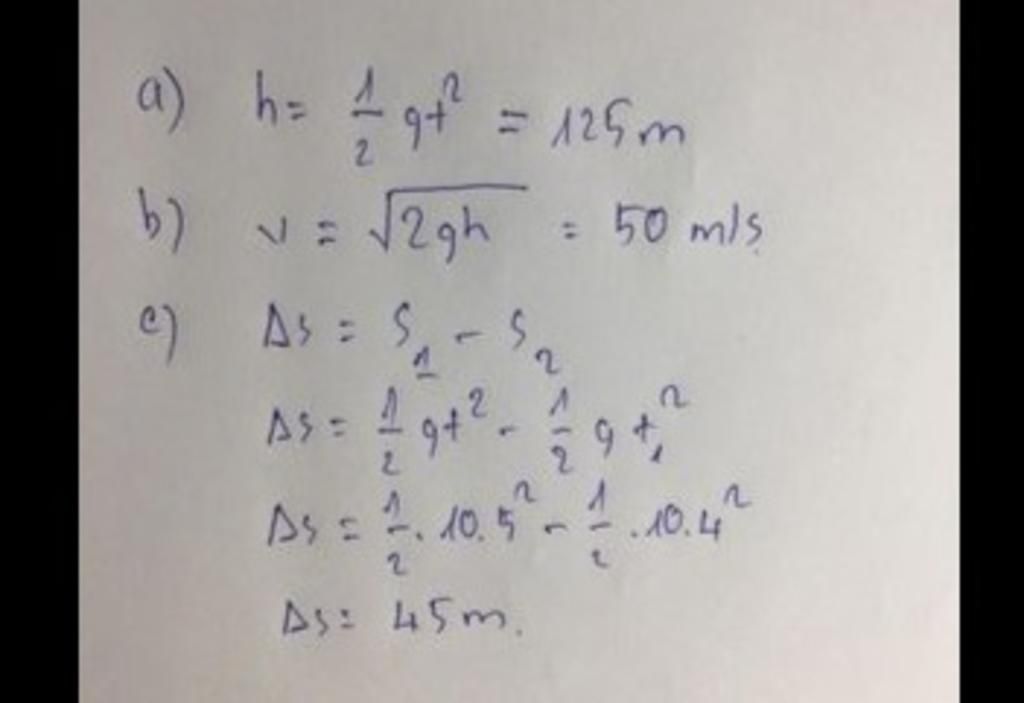 a) h = 1/2 gt² = 125m
b) v = √2gh = 50 m/s
c) Δs = S₁ - S₂
Δs = 1/2 gt² - 1/2 g t₁²
Δs = 1/2 . 10.5² - 1/2 .10.4²
Δs = 45m.